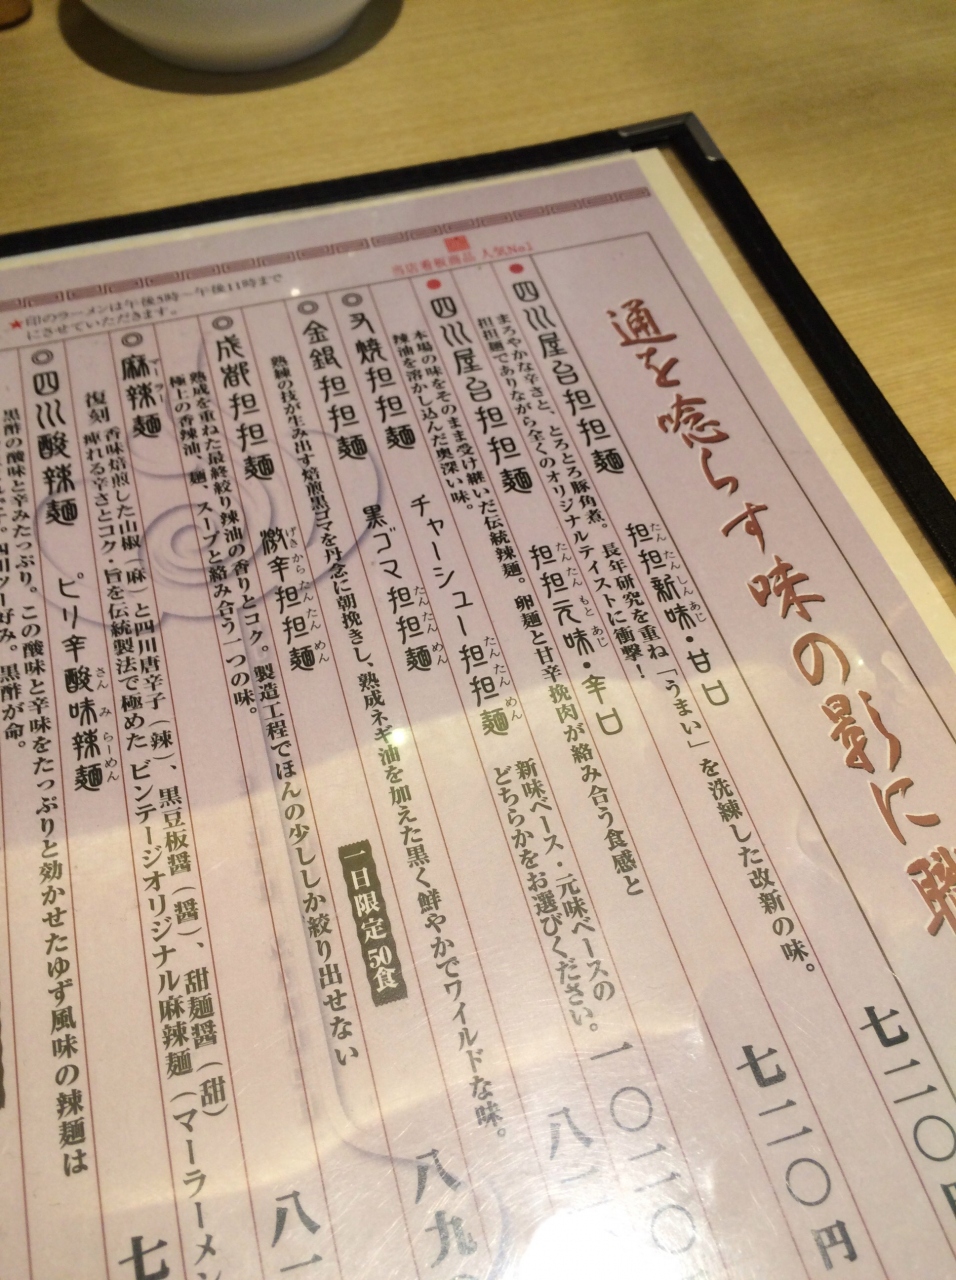 通を唸らす味の影に職
当店看板商品 人気No1
四川屋台担担麺 担担新味・甘口 七二〇円
たんたんしんあじ
まろやかな辛さと、とろとろ豚角煮。長年研究を重ね「うまい」を洗練した改新の味。
担担麺でありながら全くのオリジナルテイストに衝撃!
四川屋台担担麺 担担元味・辛口 七二〇円
たんたんもとあじ
本場の味をそのまま受け継いだ伝統辣麺。卵麺と甘辛挽肉が絡み合う食感と
辣油を溶かし込んだ奥深い味。
焼担担麺 チャーシュー担担麺
たんたんめん
新味ベース・元味ベースの
どちらかをお選びください。
一〇二〇
金銀担担麺 黒ゴマ担担麺 八
たんたんめん
熟練の技が生み出す焙煎黒ゴマを丹念に朝挽きし、熟成ネギ油を加えた黒く鮮やかでワイルドな味。
成都担担麺 激辛担担麺 一日限定50食 八九
げきからたんたんめん
熟成を重ねた最終絞り辣油の香りとコク。製造工程でほんの少ししか絞り出せない
極上の香辣油、麺、スープと絡み合う一つの味。
麻辣麺 八一
マーラー
復刻 香味焙煎した山椒(麻)と四川唐辛子(辣)、黒豆板醤(醤)、甜麺醤(甜)
痺れる辛さとコク・旨を伝統製法で極めた ビンテージオリジナル麻辣麺(マーラーメン
四川酸辣麺 ピリ辛酸味辣麺 七
さんみらーめん
黒酢の酸味と辛みたっぷり。この酸味と辛味をたっぷりと効かせたゆず風味の辣麺は
好み。黒酢が命。
★印のラーメンは午後5時〜午後11時まで
にさせていただきます。